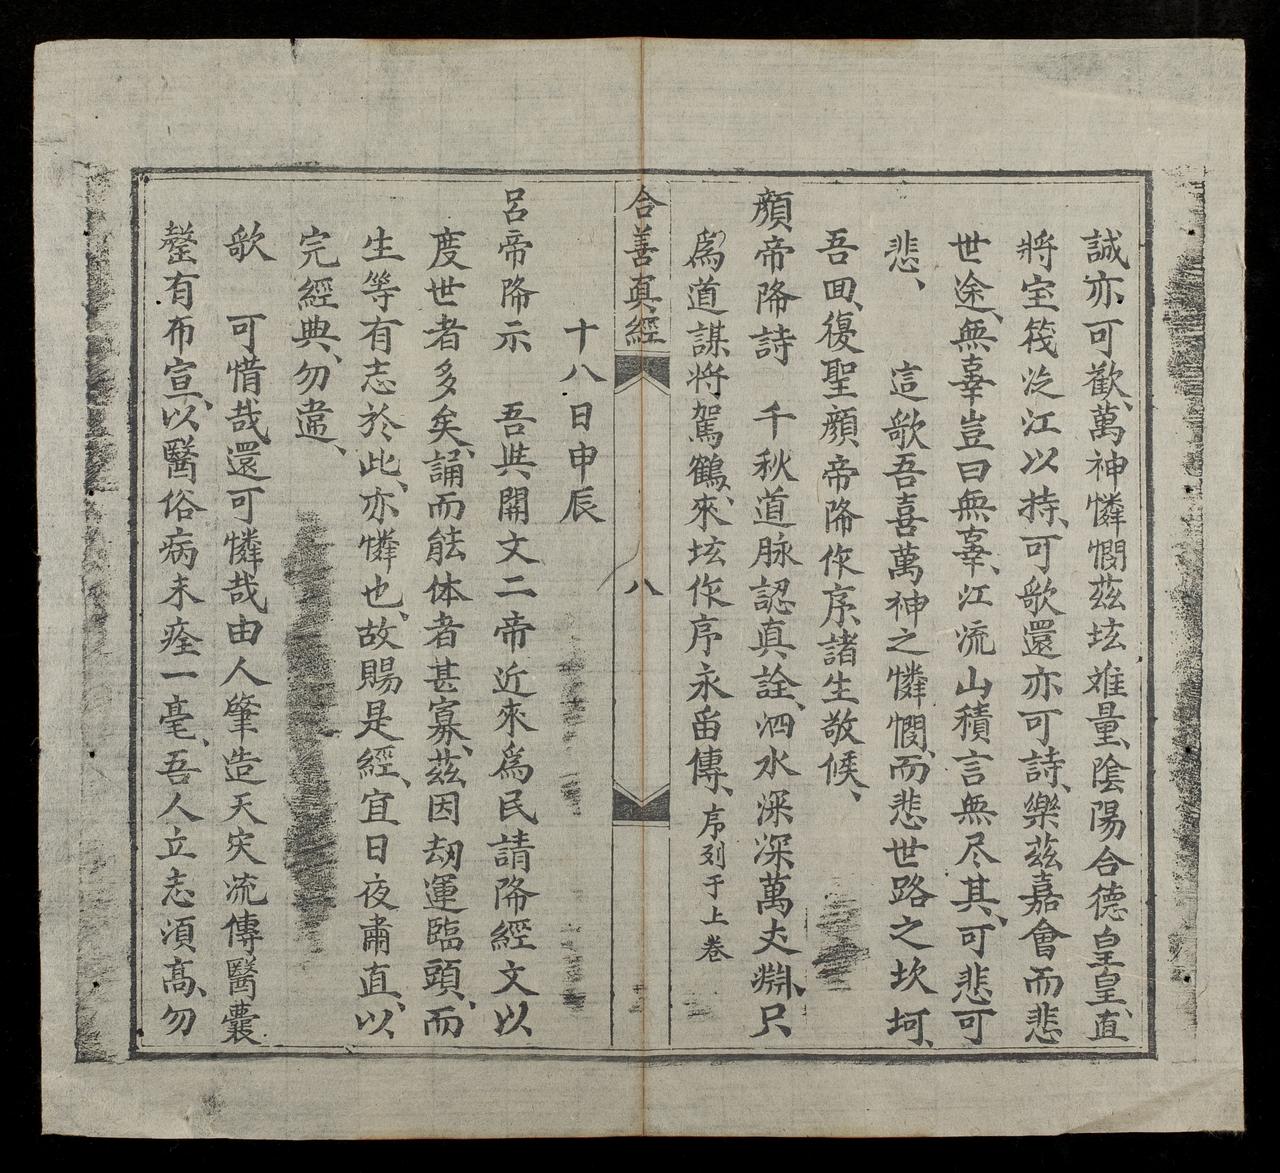 誠亦可歡、萬神憐憫茲坛难量、陰陽合德皇皇、直
將宝筏泛江以持、可歌還亦可詩、樂茲嘉會而悲
世途、無辜豈曰無辜、江流山積言無尽其、可悲可
悲、 這歌吾喜萬神之憐憫、而悲世路之坎坷、
吾囬、復聖顔帝降作序、諸生敬候、
顔帝降詩 千秋道脉認真詮、泗水深深萬丈淵、只
爲道謀将駕鶴、來坛作序永畱傳、序列于上卷
合善真經 八
十八日申辰
呂帝降示 吾與開文二帝近來爲民請降經文以
度世者多矣、誦而能体者甚寡、茲因刼運臨頭、而
生等有志於此、亦憐也、故賜是經、宜日夜肅直、以
完經典、勿違、
歌 可惜哉還可憐哉由人肇造天灾流傳醫囊
罄有布宣、以醫俗病未痊一毫、吾人立志須高、勿